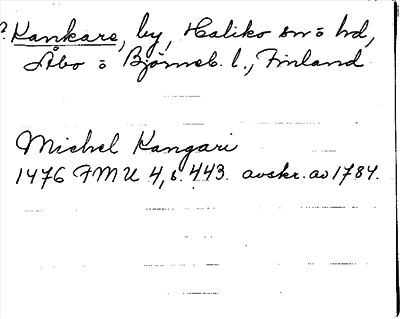 ? Kankare, by, Haliko sn o hd,
Åbo o Björneb. l., Finland
Michel Kangari
1476 FMU 4, s. 443. avskr. av 1784.